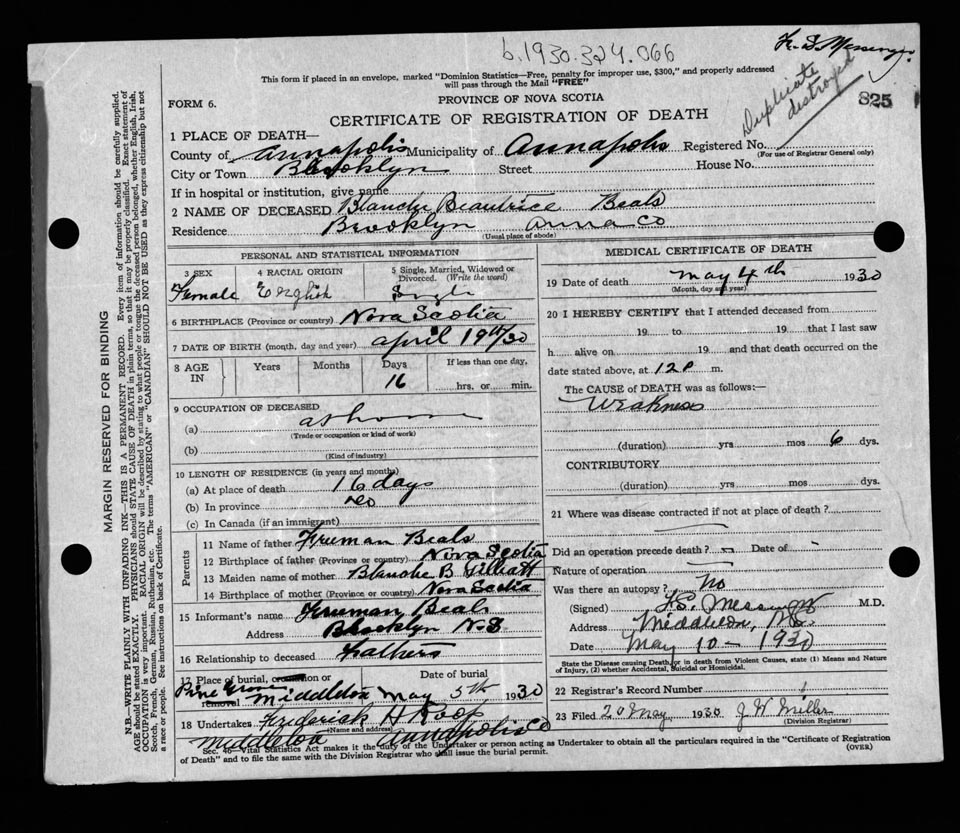 b.1930.324.066
This form if placed in an envelope, marked "Dominion Statistics—Free, penalty for improper use, $300," and properly addressed
will pass through the Mail "FREE"
Duplicate destroyed
825
FORM 6.
PROVINCE OF NOVA SCOTIA
CERTIFICATE OF REGISTRATION OF DEATH
MARGIN RESERVED FOR BINDING
N.B.—WRITE PLAINLY WITH UNFADING INK—THIS IS A PERMANENT RECORD. Every item of information should be carefully supplied.
AGE should be stated EXACTLY. PHYSICIANS should STATE CAUSE OF DEATH in plain terms, so that it may be properly classified. Exact statement of
OCCUPATION is very important. RACIAL ORIGIN will be described by stating to what people or tongue the deceased person belonged, whether English, Irish,
Scotch, French, German, Russian, Ruthenian, etc. The terms "AMERICAN" or "CANADIAN" SHOULD NOT BE USED as they express citizenship but not
a race or people. See instructions on back of Certificate.
1 PLACE OF DEATH—
County of Annapolis Municipality of Annapolis Registered No.
(For use of Registrar General only)
City or Town Brooklyn Street House No.
If in hospital or institution, give name
2 NAME OF DECEASED Blanche Beautrice Beals
Residence Brooklyn Anna Co
(Usual place of abode)
PERSONAL AND STATISTICAL INFORMATION
3 SEX
Female
4 RACIAL ORIGIN
English
5 Single, Married, Widowed or
Divorced. (Write the word)
Single
6 BIRTHPLACE (Province or country) Nova Scotia
7 DATE OF BIRTH (month, day and year) april 19th/30
8 AGE IN
Years Months Days If less than one day,
16 hrs. or min.
9 OCCUPATION OF DECEASED
(a) at home
(Trade or occupation or kind of work)
(b)
(Kind of industry)
10 LENGTH OF RESIDENCE (in years and months)
(a) At place of death 16 days
(b) In province do
(c) In Canada (if an immigrant)
Parents
11 Name of father Freeman Beals
12 Birthplace of father (Province or country) Nova Scotia
13 Maiden name of mother Blanche B Gilliatt
14 Birthplace of mother (Province or country) Nova Scotia
15 Informant's name Freeman Beals
Address Brooklyn N.S
16 Relationship to deceased Father
17 Place of burial, cremation or removal Date of burial
Pine Grove Middleton May 5th 1930
18 Undertaker Frederick H Roop
(Name and address)
Middleton Annapolis Co
MEDICAL CERTIFICATE OF DEATH
19 Date of death may 4th 1930
(Month, day and year)
20 I HEREBY CERTIFY that I attended deceased from
19 to 19 that I last saw
h alive on 19 and that death occurred on the
date stated above, at 12 P m.
The CAUSE of DEATH was as follows:—
Weakness
(duration) yrs mos 6 dys.
CONTRIBUTORY
(duration) yrs mos dys.
21 Where was disease contracted if not at place of death?
Did an operation precede death? Date of
Nature of operation
Was there an autopsy? No
(Signed) Messenger M.D.
Address Middleton, N.S.
Date May 10 - 1930
State the Disease causing Death, or in death from Violent Causes, state (1) Means and Nature
of Injury, (2) whether Accidental, Suicidal or Homicidal.
22 Registrar's Record Number
23 Filed 20 May 1930 J W Miller
(Division Registrar)
Sec. Vital Statistics Act makes it the duty of the Undertaker or person acting as Undertaker to obtain all the particulars required in the "Certificate of Registration
of Death" and to file the same with the Division Registrar who shall issue the burial permit. (OVER)